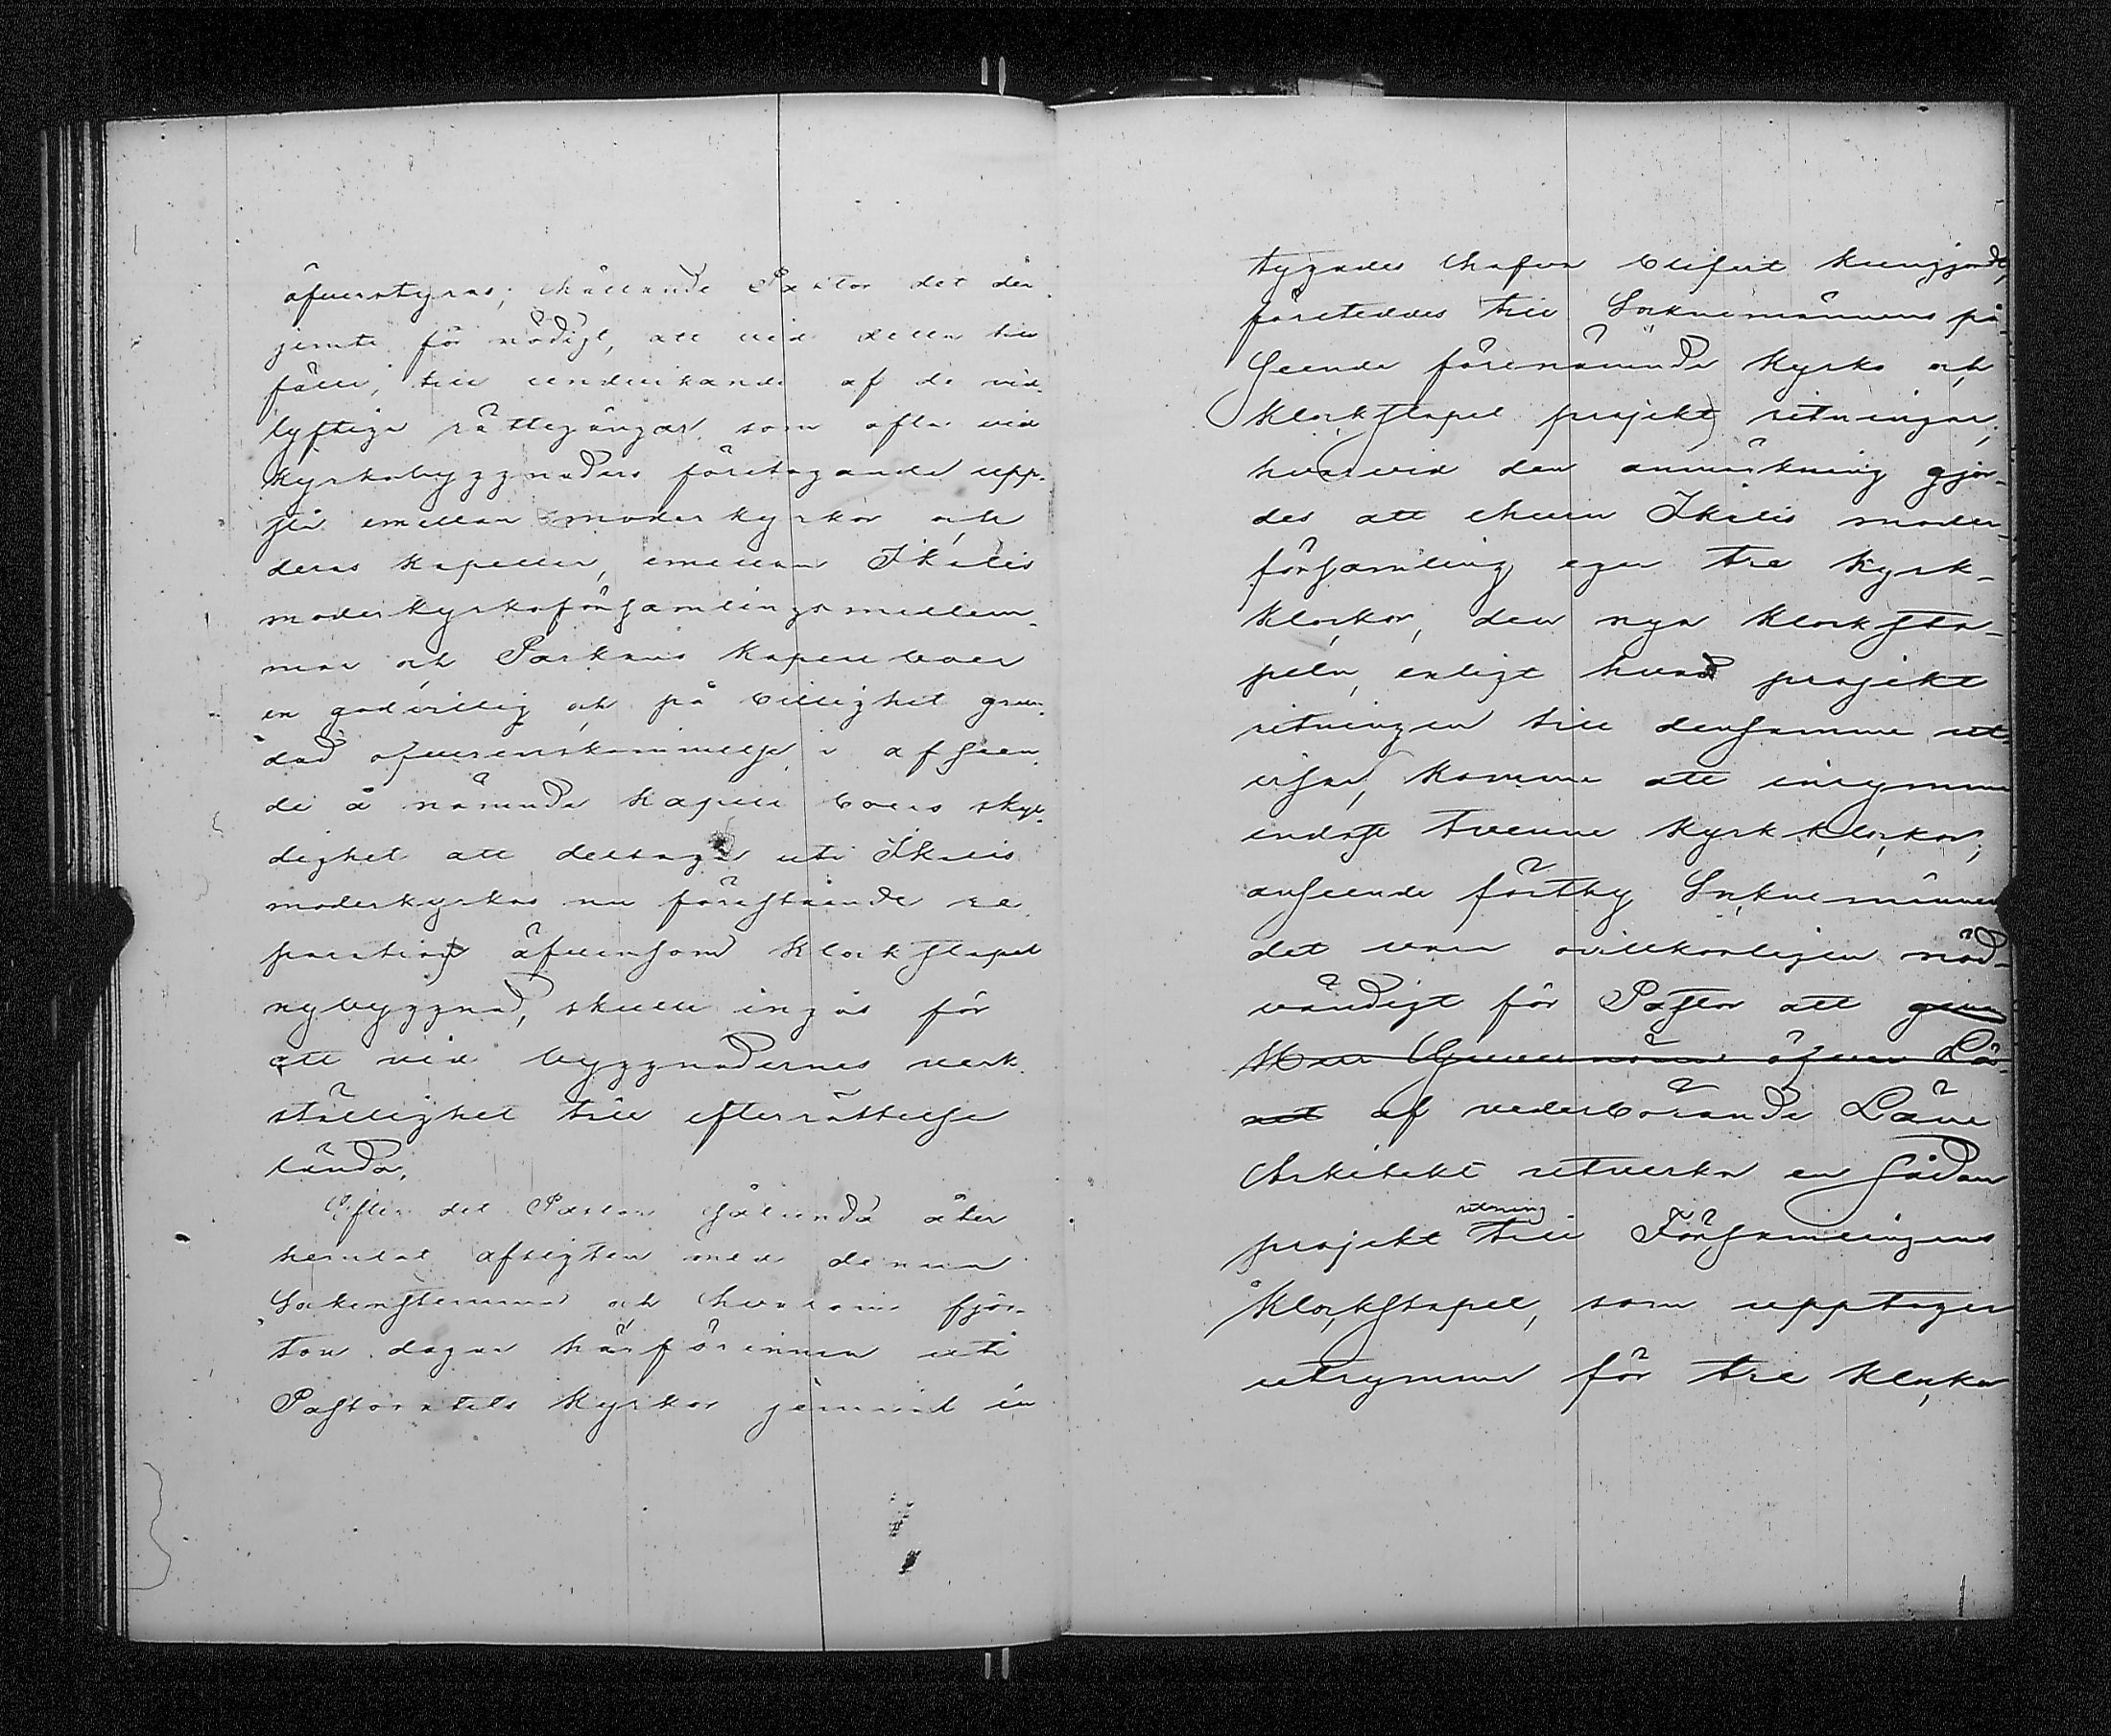 öfverstyras; hållande Pastor det der-
jemte för nödigt, att vid detta till
fälle, till undvikande af de vid-
lyftiga rättegångar som ofta vid
kyrkobyggnaders företagande upp-
stå emellan moderkyrkor och
deras kapeller, emellan Ikalis
moderkyrkoförsamlingsmedlem-
mar och Parkano kapellboer
en godvillig och på billighet grun-
dad öfverenskommelse, i afseen-
de å nämnde kapellboers skyl-
dighet att deltaga uti Ikalis
moderkyrkas nu förestående re
paration äfvensom klockstapel
nybyggnad, skulle ingås för
att vid byggnadernes verk-
ställighet till efterrättelse
lända.
Efter det Pastor sålunda åter
hemtat afsigten med denna
Sockenstemma och hvarom fjor-
ton dagar härförinnan uti
Pastoratets kyrkor jemväl in
tygades hafva blifvit kungjordt,
företeddes till Sockenemännens på-
seende förenämnde kyrko och
klockstapel projekt ritningar,
hvarvid den anmärkning gjor-
des att ehuru Ikalis moder-
församling eger tre kyrk-
klockor, den nya klocksta-
peln, enligt hvad projekt
ritningen till densamma ut-
visar, komme att inrymma
endast tvenne kyrkklockor;
anseende förthy Socknemännen
det vara ovillkorligen nöd-
vändigt för Pastor att genom
Herr Guvernören öfver Lä-
net af vederbörande Läns
Arkitekt utverka en sådan
projekt ritning till Församlingens
klockstapel, som upptager
utrymme för tre klockor